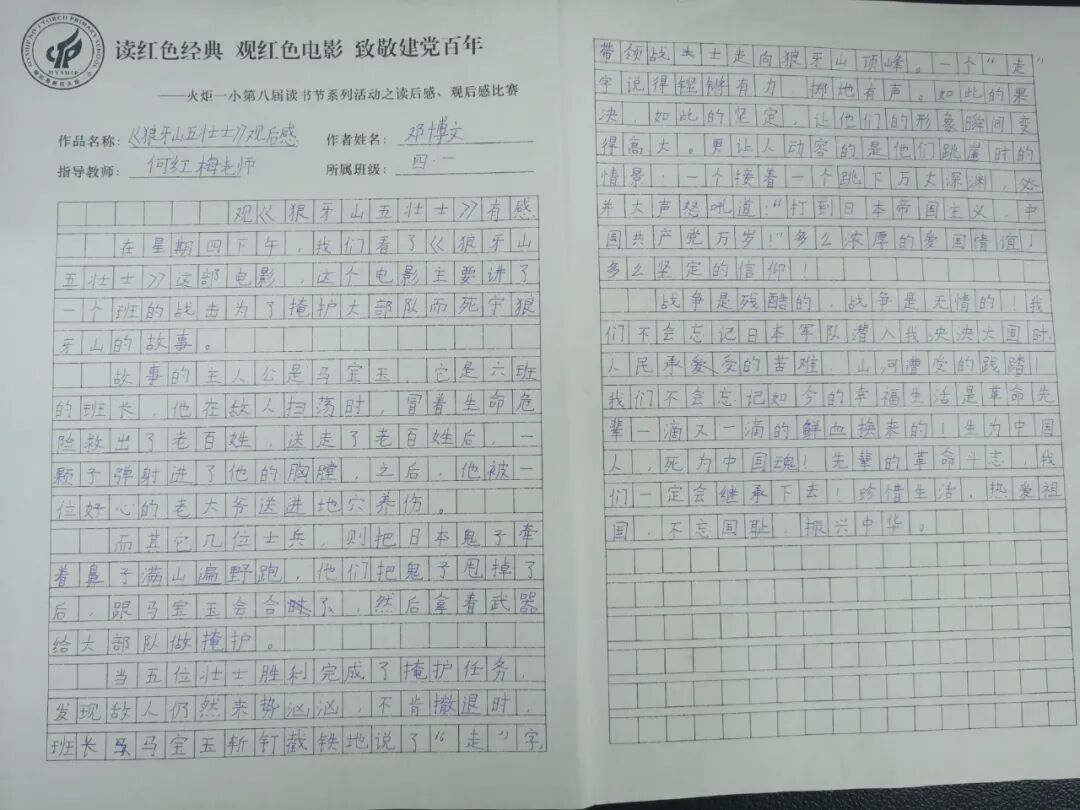 读红色经典 观红色电影 致敬建党百年
——火炬一小第八届读书节系列活动之读后感、观后感比赛
作品名称:《狼牙山五壮士》观后感 作者姓名: 邓博文
指导教师: 何红梅老师 所属班级: 四.一
观《狼牙山五壮士》有感
在星期四下午,我们看了《狼牙山
五壮士》这部电影,这个电影主要讲了
一个班的战击为了掩护大部队而死守狼
牙山的故事。
故事的主人公是马宝玉,它是六班
的班长,他在敌人扫荡时,冒着生命危
险救出了老百姓,送走了老百姓后,一
颗子弹射进了他的胸膛,之后,他被一
位好心的老大爷送进地穴养伤。
而其它几位士兵,则把日本鬼子牵
着鼻子满山遍野跑,他们把鬼子甩掉了
后,跟马宝玉会合了,然后拿着武器
给大部队做掩护。
当五位壮士胜利完成了掩护任务,
发现敌人仍然来势汹汹,不肯撤退时,
班长马宝玉斩钉截铁地说了“走”字,
带领战士走向狼牙山顶峰。一个“走”
字说得铿锵有力,掷地有声。如此的果
决,如此的坚定,让他们的形象瞬间变
得高大。更让人动容的是他们跳崖时的
情景:一个接着一个跳下万丈深渊,
并大声怒吼道:“打到日本帝国主义,中
国共产党万岁!”多么浓厚的爱国情谊!
多么坚定的信仰!
战争是残酷的,战争是无情的!我
们不会忘记日本军队潜入我泱泱大国时,
人民承受的苦难,山河遭受的践踏!
我们不会忘记如今的幸福生活是革命先
辈一滴又一滴的鲜血换来的!生为中国
人,死为中国魂!先辈的革命斗志,我
们一定会继承下去!珍惜生活,热爱祖
国,不忘国耻,振兴中华。